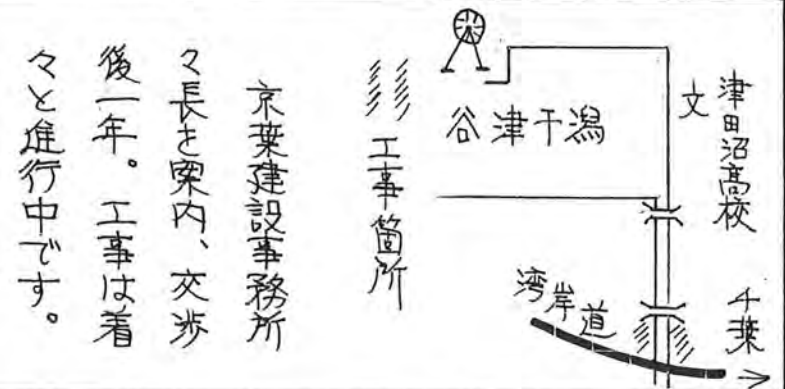 津田沼高校
文
千葉
谷津干潟
湾岸道
工事箇所
京葉建設事務所
々長を案内、交渉
後一年。工事は着
々と進行中です。